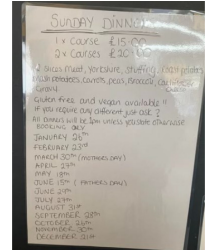 SUNDAY DINNER
1x Course £15.00
2x Courses £20.00
2 slices meat, Yorkshire, stuffing, roast potatoes
mash potatoes, carrots, peas, Broccoli, Cauliflower
Cheese
Gravy
Gluten free and vegan available !!
if you require any different just ask ?
All dinners will be 2pm unless you state otherwise
BOOKING ONLY
JANUARY 26th
FEBRUARY 23rd
MARCH 30th (MOTHERS DAY)
APRIL 27th
MAY 18th
JUNE 15th (FATHERS DAY)
JUNE 29th
JULY 27th
AUGUST 31st
SEPTEMBER 28th
OCTOBER 26th
NOVEMBER 30th
DECEMBER 21st